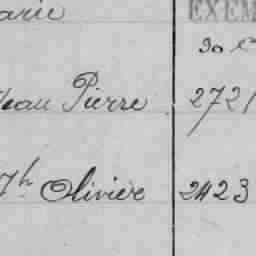 arie EXEM
30 C
Jean Pierre 2721
Jh Olivier 2423